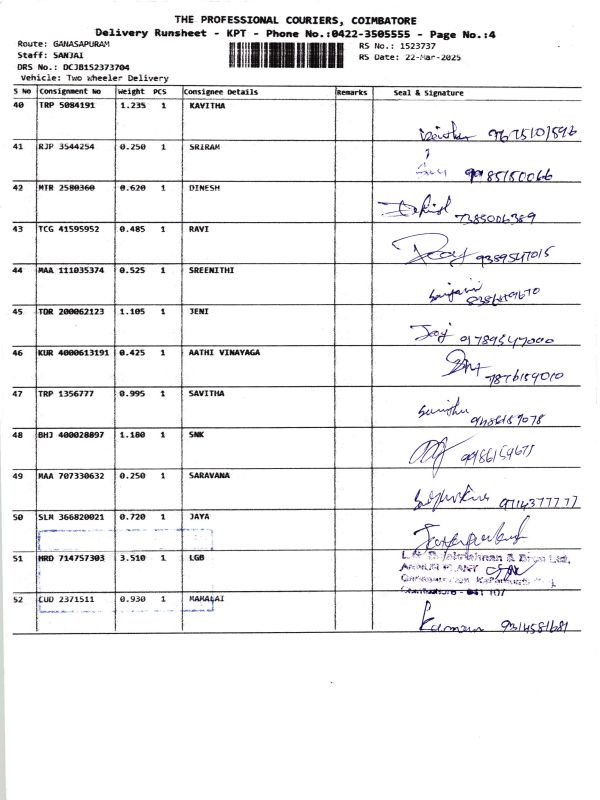 THE PROFESSIONAL COURIERS, COIMBATORE
Delivery Runsheet - KPT - Phone No.:0422-3505555 - Page No.:4
Route: GANASAPURAM RS No.: 1523737
Staff: SANJAI RS Date: 22-Mar-2025
DRS No.: DCJB152373704
Vehicle: Two Wheeler Delivery
S No Consignment No Weight PCS Consignee Details Remarks Seal & Signature
40 TRP 5084191 1.235 1 KAVITHA
41 RJP 3544254 0.250 1 SRIRAM
9985150066
42 MTR 2580360 0.620 1 DINESH
7385006389
43 TCG 41595952 0.485 1 RAVI
9389547015
44 MAA 111035374 0.525 1 SREENITHI
45 TDR 200062123 1.105 1 JENI
46 KUR 4000613191 0.425 1 AATHI VINAYAGA
7876159010
47 TRP 1356777 0.995 1 SAVITHA
9486159078
48 BHJ 400028897 1.180 1 SNK
49 MAA 707330632 0.250 1 SARAVANA
9714377777
50 SLM 366820021 0.720 1 JAYA
51 MRD 714757303 3.510 1 LGB
52 CUD 2371511 0.930 1 MAHALAI
9314581681